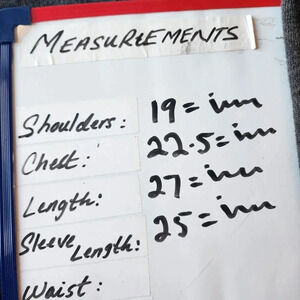 MEASUREMENTS
Shoulders: 19= inn
Chest: 22.5= inn
Length: 27= inn
Sleeve Length: 25= inn
Waist: